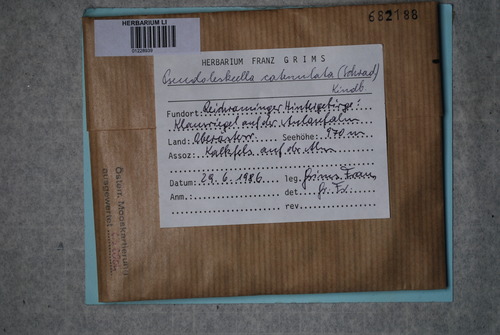 682188
HERBARIUM LI
HERBARIUM FRANZ GRIMS
Pseudoleskeella catenulata (Schrad)
Kindb.
Fundort: Reichraminger Hintergebirge:
auf der
Land: Oberösterr. Seehöhe: 970 m
Assoz: Kalkfels auf der
Datum: 29.6.1986 leg. Grims Franz
Anm. det. Gr. Fr.
rev.
Österr. Mooskartierung
ausgewertet